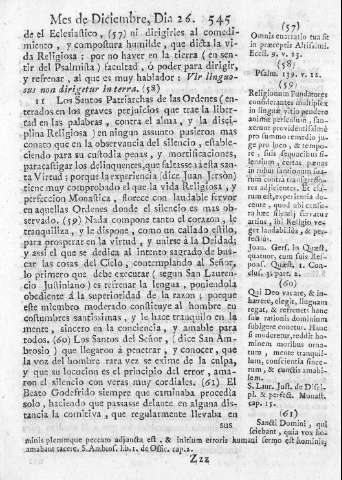 Mes de Diciembre, Dia 26. 545
de el Eclesiastico, (57) ni dirigirles al comedi-
miento, y compostura humilde, que dicta la vi-
da Religiosa: por no haver en la tierra (en sen-
tir del Psalmista) facultad, ò poder para dirigir,
y refrenar, al que es muy hablador: Vir linguo-
sus non dirigetur in terra. (58)
11 Los Santos Patriarchas de las Ordenes (en-
terados en los graves perjuicios que trae la liber-
tad en las palabras, contra el alma, y la disci-
plina Religiosa) en ningun assunto pusieron mas
conato que en la observancia del silencio, estable-
ciendo para su custodia penas, y mortificaciones,
para castigar los delinquentes, que faltasse à esta san-
ta Virtud; porque la experiencia (dice Juan Jerson)
tiene muy comprobado el que la vida Religiosa, y
perfeccion Monastica, florece con laudable fervor
en aquellas Ordenes donde el silencio es mas ob-
servado. (59) Nada compone tanto el corazon, le
tranquiliza, y le dispone, como un callado estilo,
para prosperar en la virtud, y unirse à la Deidad;
y assi el que se dedica al intento sagrado de bus-
car las cosas del Cielo, contemplando al Señor,
lo primero que debe executar (segun San Lauren-
cio Justiniano) es refrenar la lengua, poniendola
obediente à la superioridad de la razon; porque
este miembro moderado constituye al hombre en
costumbres santissimas, y le hace tranquilo en la
mente, sincero en la conciencia, y amable para
todos. (60) Los Santos del Señor, (dice San Am-
brosio) que llegaron à penetrar, y conocer, que
la voz del hombre rara vez se exime de la culpa,
y que su locucion es el principio del error, ama-
ron el silencio con veras muy cordiales. (61) El
Beato Godefrido siempre que caminaba procedia
solo, haciendo que passasse delante en alguna dis-
tancia la comitiva, que regularmente llevaba en
sus
(57)
Omnis enarratio tua sit
in præceptis Altissimi.
Eccl. 9. v. 23.
(58)
Psalm. 139. v. 12.
(59)
Religionum Fundatores
considerantes multiplex
in linguæ vitio pendere
animæ periculum, san-
xerunt providentissimè
pro summo remedio ju-
ge pro loco, & tempo-
re, suis
(60)
Qui Deo vacare, & in-
hærere, elegit, linguam
regat, & refrenet hanc
suæ rationis dominium
subigere conetur. Hunc
moderetur, reddit ho-
minem moribus orna-
tum, mente tranquil-
lum, conscientia since-
rum, & cunctis amabi-
lem.
S. Laur. Just. de Discipl.
& perfect. Monast.
cap. 15.
(61)
Sancti Domini, qui
sciebant, quia vox ho-
minis plerumque peccato adjuncta est, & initium erroris humani sermo est hominis,
amabant tacere. S. Ambros. lib. 1. de Offic. cap. 2.
Zzz